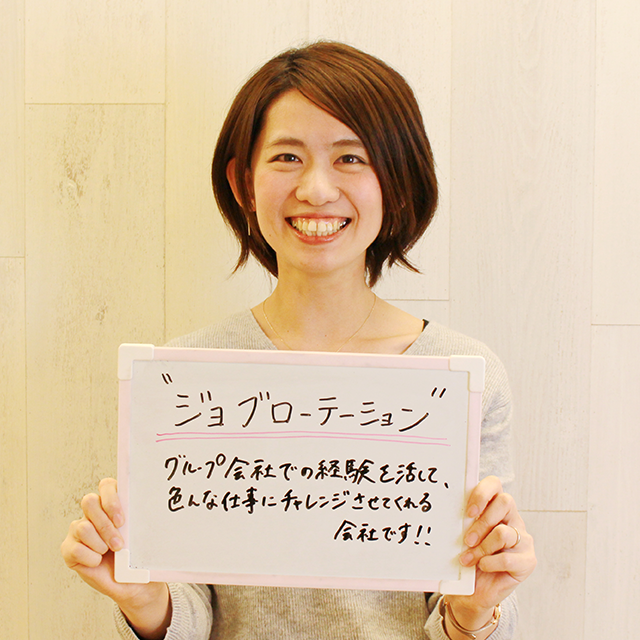 "ジョブローテーション"
グループ会社での経験を活して、
色んな仕事にチャレンジさせてくれる
会社です!!